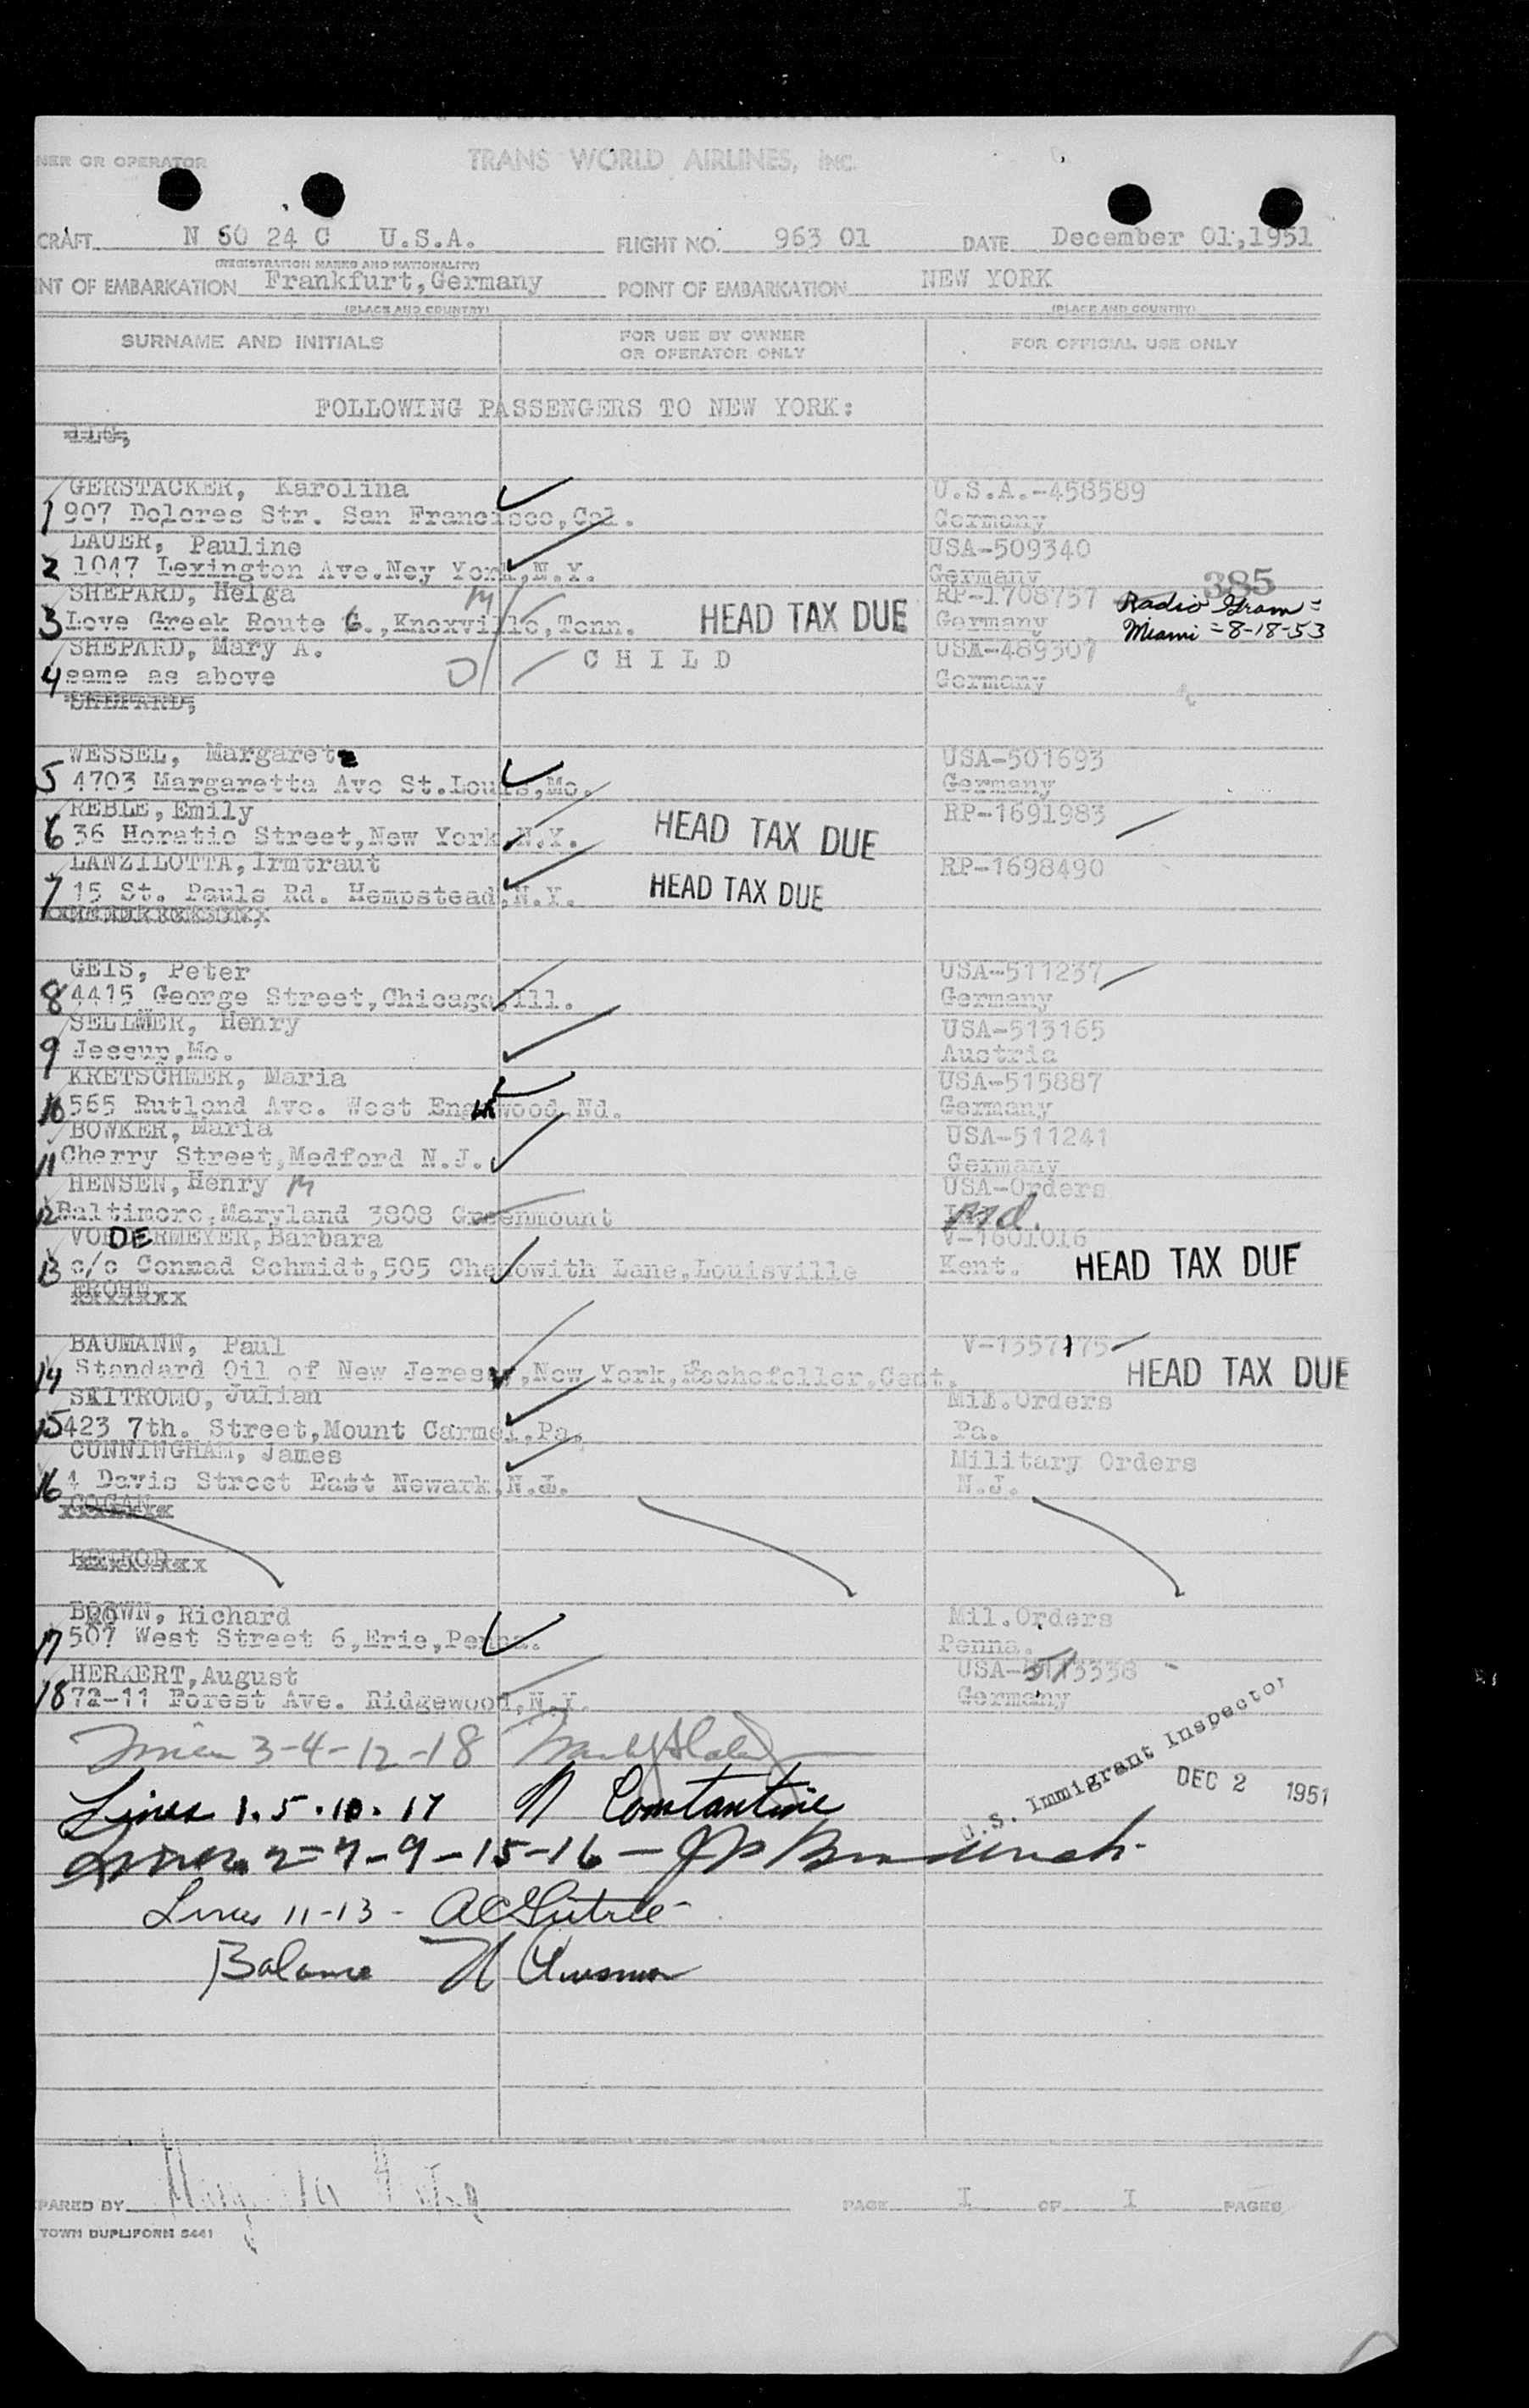 NER OR OPERATOR TRANS WORLD AIRLINES, INC.
CRAFT N 60 24 C U.S.A. FLIGHT NO. 963 01 DATE December 01,1951
(REGISTRATION MARKS AND NATIONALITY)
NT OF EMBARKATION Frankfurt,Germany POINT OF EMBARKATION NEW YORK
(PLACE AND COUNTRY) (PLACE AND COUNTRY)
SURNAME AND INITIALS FOR USE BY OWNER OR OPERATOR ONLY FOR OFFICIAL USE ONLY
FOLLOWING PASSENGERS TO NEW YORK:
GERSTACKER, Karolina U.S.A.-458589
1 907 Dolores Str. San Francisco,Cal. Germany
LAUER, Pauline USA-509340
2 1047 Lexington Ave.Ney York,N.Y. Germany
SHEPARD, Helga M RP-1708757 385
3 Love Greek Route 6.,Knoxville,Tenn. HEAD TAX DUE Germany Radio Gram =
Miami = 8-18-53
SHEPARD, Mary A. CHILD USA-489307
4 same as above D Germany
SHEPARD,
WESSEL, Margarete USA-501693
5 4703 Margaretta Ave St.Louis,Mo. Germany
REBLE,Emily RP-1691983
6 36 Horatio Street,New York N.Y. HEAD TAX DUE
LANZILOTTA,Irmtraut RP-1698490
7 15 St. Pauls Rd. Hempstead,N.Y. HEAD TAX DUE
GEIS, Peter USA-511237
8 4415 George Street,Chicago,Ill. Germany
SELLMER, Henry USA-513165
9 Jessup,Mo. Austria
KRETSCHMER, Maria USA-515887
10 565 Rutland Ave. West Englewood Nd. Germany
BOWKER, Maria USA-511241
11 Cherry Street,Medford N.J. Germany
HENSEN,Henry M USA-Orders
12 Baltimore,Maryland 3808 Greenmount Md.
VORDERMEYER,Barbara V-1601016
13 c/o Conmad Schmidt,505 Chenowith Lane,Louisville Kent. HEAD TAX DUE
FROHM
BAUMANN, Paul V-1357175
14 Standard Oil of New Jeresey,New York,Rochefeller,Cent. HEAD TAX DUE
SKITROMO, Julian Mil.Orders
15 423 7th. Street,Mount Carmel,Pa. Pa.
CUNNINGHAM, James Military Orders
16 4 Davis Street East Newark,N.J. N.J.
COGAN
BROWN, Richard Mil.Orders
17 507 West Street 6,Erie,Penna. Penna.
HERKERT,August USA-5113338
18 72-11 Forest Ave. Ridgewood,N.Y. Germany
3-4-12-18
U.S. Immigrant Inspector
DEC 2 1951
Lines 1.5.10.17 N Constantine
Lines 2-7-9-15-16 -
Lines 11-13 -
Balance
PARED BY PAGE I OF I PAGES
TOWN DUPLIFORM 5441